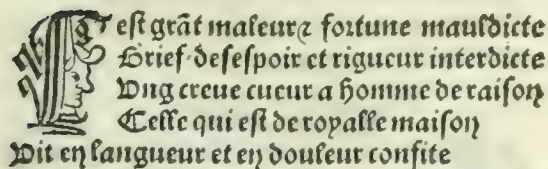 C est grāt maleur ⁊ fortune mauldicte
Grief desespoir et rigueur interdicte
Ung creue cueur a homme de raison
Celle qui est de royalle maison
Vit en langueur et en douleur confite